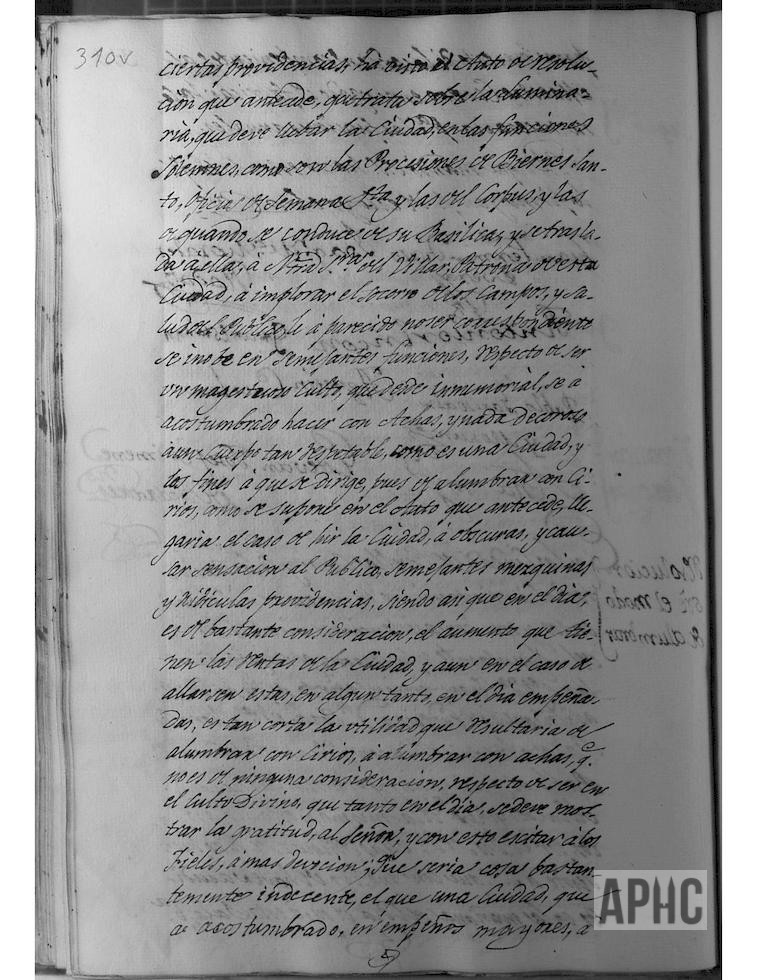 310v
ciertas providencias, ha visto el Auto de resolu-
ción que antecede, que trata sobre la Lumina-
ria, que deve llebar la Ciudad, en las funciones
Solemnes, como son las Procesiones de Biernes San-
to, Oficio de Semana Sta y las del Corpus, y las
de quando se conduce de su Basilica, y se trasla-
da a ella, á Ntrã Srã del Villar Patrona de esta
Ciudad, á implorar el Socorro de los Campos, y sa-
lud del Publico, le á parecido no ser correspondiente
se inobe en semejantes funciones, respecto de ser
un magestuoso Culto, que desde inmemorial, se á
acostumbrado hacer con Achas, y nada decoroso
á un Cuerpo tan respetable, como es una Ciudad, y
los fines á que se dirige, pues de alumbrar con Ci-
rios, como se supone en el Auto que antecede, lle-
garia el caso de hir la Ciudad, á obscuras, y cau-
sar sensacion al Publico, semejantes mezquinas
y ridiculas providencias, siendo asi que en el dia,
es de bastante consideracion, el aumento que tie-
nen las rentas de la Ciudad, y aun en el caso de
allarsen estas, en algun tanto, en el dia empeña-
das, es tan corta la utilidad que resultaria de
alumbrar con Cirios, á alumbrar con achas, q.e
no es de ninguna consideracion, respecto de ser en
el Culto Divino, que tanto en el dia, se deve mos-
trar la gratitud, al Señor, y con esto escitar á los
Fieles, á mas devocion; Que seria cosa bastan-
temente indecente, el que una Ciudad, que
a acostumbrado, en empeños mayores, a
resolucion
sre el modo
de alumbrar
APHC